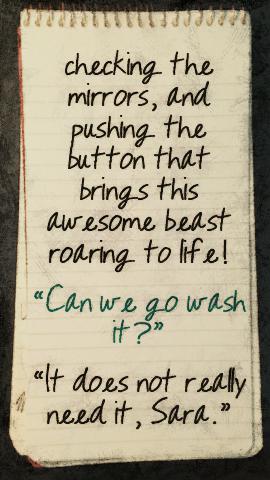 checking the
mirrors, and
pushing the
button that
brings this
awesome beast
roaring to life!
“Can we go wash
it?”
“It does not really
need it, Sara.”